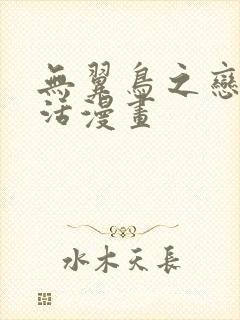 無翼鳥之戀
活漫畫
水木天長